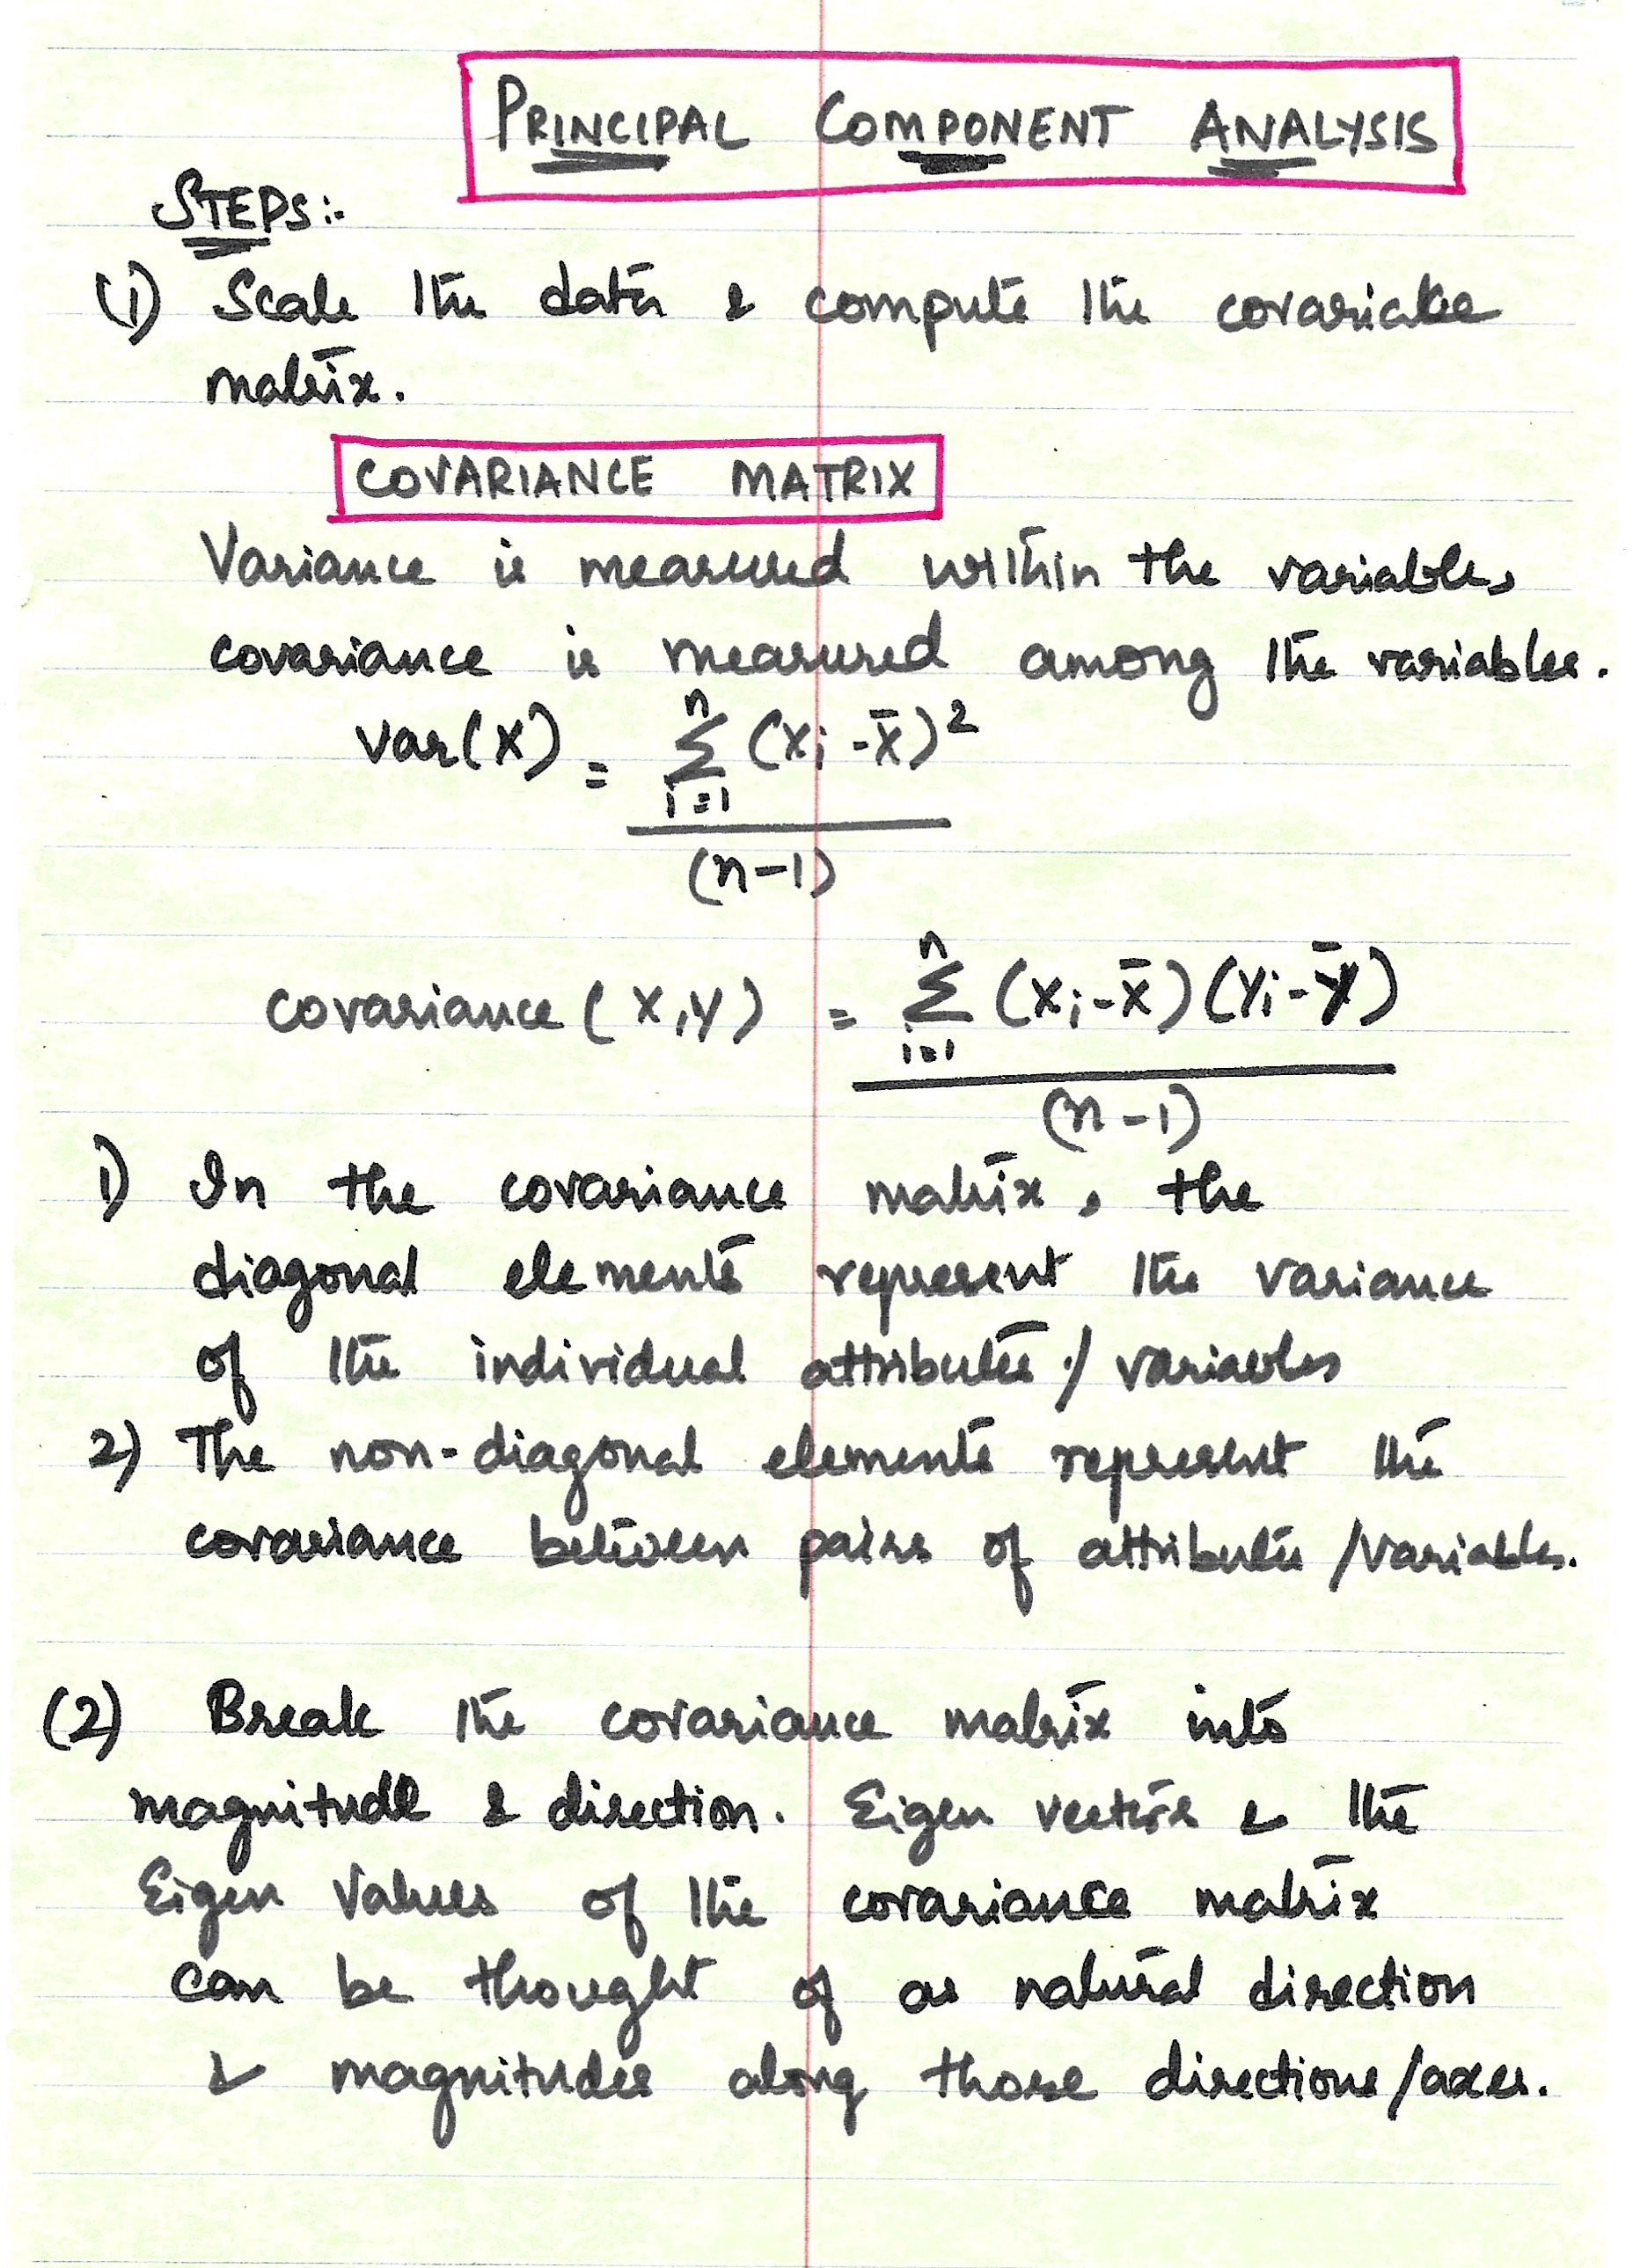 PRINCIPAL COMPONENT ANALYSIS
STEPS:-
(1) Scale the data & compute the covariance
matrix.
COVARIANCE MATRIX
Variance is measured within the variables,
covariance is measured among the variables.
var(X) = n Σ i=1 (Xi - X̄)²
(n-1)
covariance (X,Y) = n Σ i=1 (Xi - X̄)(Yi - Ȳ)
(n-1)
1) In the covariance matrix, the
diagonal elements represent the variance
of the individual attributes / variables
2) The non-diagonal elements represent the
covariance between pairs of attributes /variables.
(2) Break the covariance matrix into
magnitude & direction. Eigen vectors & the
Eigen Values of the covariance matrix
can be thought of as natural direction
& magnitudes along those directions/axes.